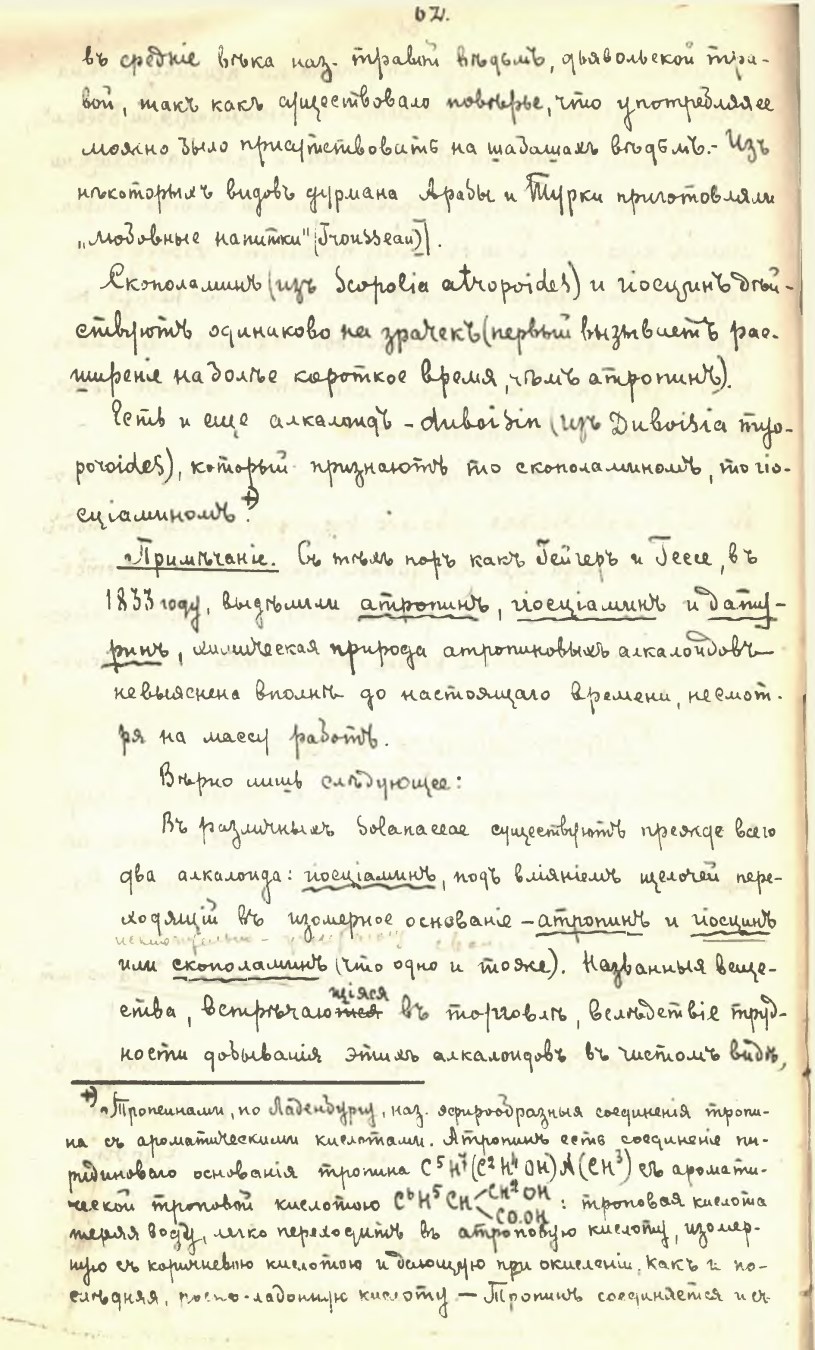 62.
въ средніе вѣка наз. травой вѣдьмъ, дьявольской тра-
вой, такъ какъ существовало повѣрье, что употребляя ее
можно было присутствовать на шабашахъ вѣдьмъ.- Изъ
нѣкоторыхъ видовъ дурмана Арабы и Турки приготовляли
„любовные напитки" (Trousseau)].
Скополаминъ (изъ Scopolia atropoides) и гіосцинъ дѣй-
ствуютъ одинаково на зрачекъ (первый вызываетъ рас-
ширеніе на болѣе короткое время, чѣмъ атропинъ).
Есть и еще алкалоидъ - duboisin (изъ Duboisia myo-
poroides), который признаютъ то скополаминомъ, то гіо-
сціаминомъ.+)
Примѣчаніе. Съ тѣхъ поръ какъ Гейгеръ и Гессе, въ
1833 году, выдѣлили атропинъ, гіосціаминъ и дату-
ринъ, химическая природа атропиновыхъ алкалоидовъ
не выяснена вполнѣ до настоящаго времени, несмот-
ря на массу работъ.
Вѣрно лишь слѣдующее:
Въ различныхъ Solanaceae существуютъ прежде всего
два алкалоида: гіосціаминъ, подъ вліяніемъ щелочей пере-
ходящій въ изомерное основаніе - атропинъ и гіосцинъ
или скополаминъ (что одно и тоже). Названныя веще-
щіяся
ства, встрѣчаются въ торговлѣ, вслѣдствіе труд-
ности добыванія этихъ алкалоидовъ въ чистомъ видѣ,
+) Тропеинами, по Ладенбургу, наз. эфирообразныя соединенія тропи-
на съ ароматическими кислотами. Атропинъ есть соединеніе пи-
ридиноваго основанія тропина C⁵H⁷(C²H⁴OH)A(CH³) съ аромати-
ческой троповой кислотою C⁶H⁵CH<CH²OH CO.OH : троповая кислота
теряя воду, легко переходитъ въ атроповую кислоту, изомер-
ную съ коричневою кислотою и дающую при окисленіи, какъ и по-
слѣдняя, кислоту — Тропинъ соединяется и съ